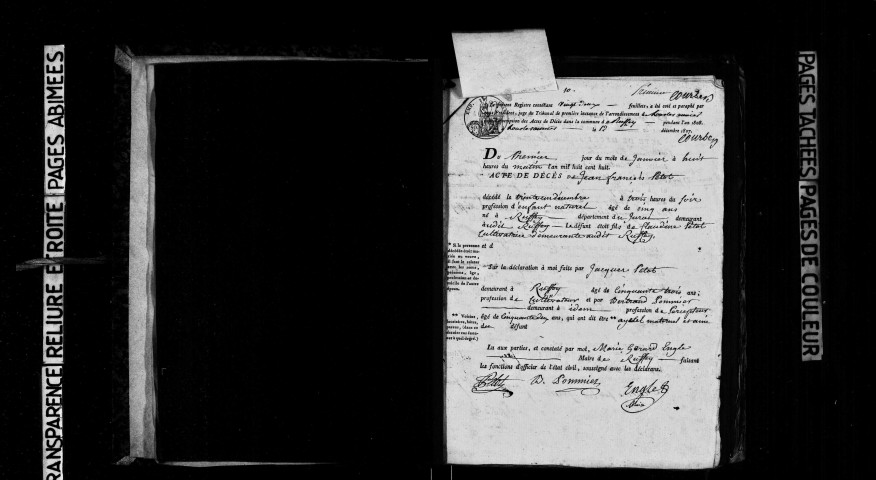 PAGES ABIMEES
RELIURE ETROITE
TRANSPARENCE
10.
Premier
Courbe
Le présent Registre contenant Vingt deux feuillets, a été coté et paraphé par
Président, juge du Tribunal de première instance de l'arrondissement de
inscription des Actes de Décès dans la commune de Ruffey pendant l'an 1808.
décembre 1807.
Du Premier jour du mois de Janvier à huit
heures du matin l'an mil huit cent huit.
ACTE DE DÉCÈS de Jean françois Petot
décédé le trente un décembre à trois heures du soir
profession d'enfant naturel âgé de cinq ans
né à Ruffey département du Jura demeurant
audit Ruffey Le défunt étoit fils de Claudine Petot
Cultivatrice demeurante audit Ruffey
* Si la personne
et d
Sur la déclaration à moi faite par Jacques Petot
demeurant à Ruffey âgé de Cinquante trois ans;
profession de Cultivateur et par Bertrand Pommier
demeurant à idem profession de Percepteur
** Voisins,
âgé de Cinquante deux ans, qui ont dit être ** ayeul maternel et ami
du défunt
Lu aux parties, et constaté par moi, Marie Gerard Engle
Maire de Ruffey faisant
les fonctions d'officier de l'état civil, soussigné avec les déclarans.
Petot D. Pommier Engle
PAGES TACHÉES
PAGES DE COULEUR